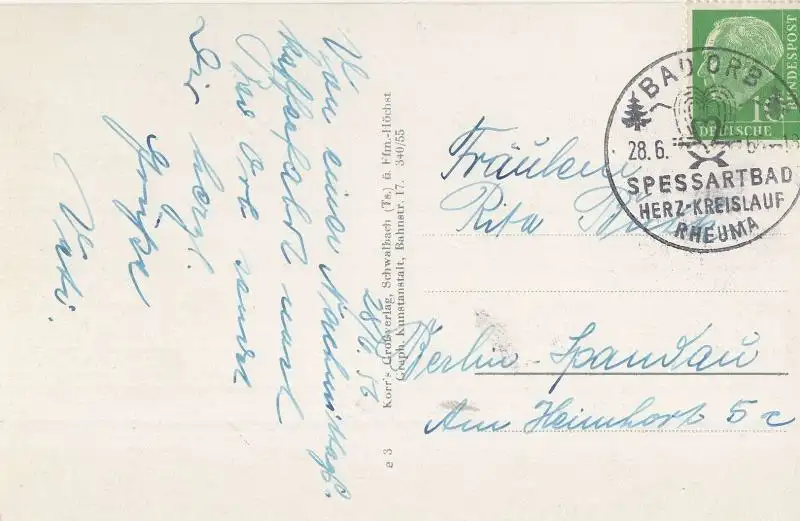 28.6.56
Von einer Nachmittags-
kaffeefahrt nach
Bad Orb sendet
Dir herzl.
Grüße
Vati.
Korr's Großverlag, Schwalbach (Ts.) b. Ffm.-Höchst
Graph. Kunstanstalt, Bahnstr. 17. 340/55
e 3
DEUTSCHE BUNDESPOST
10
BAD ORB
28.6.
SPESSARTBAD
HERZ-KREISLAUF
RHEUMA
Fräulein
Rita
Berlin-Spandau
Am Heimhort 5c